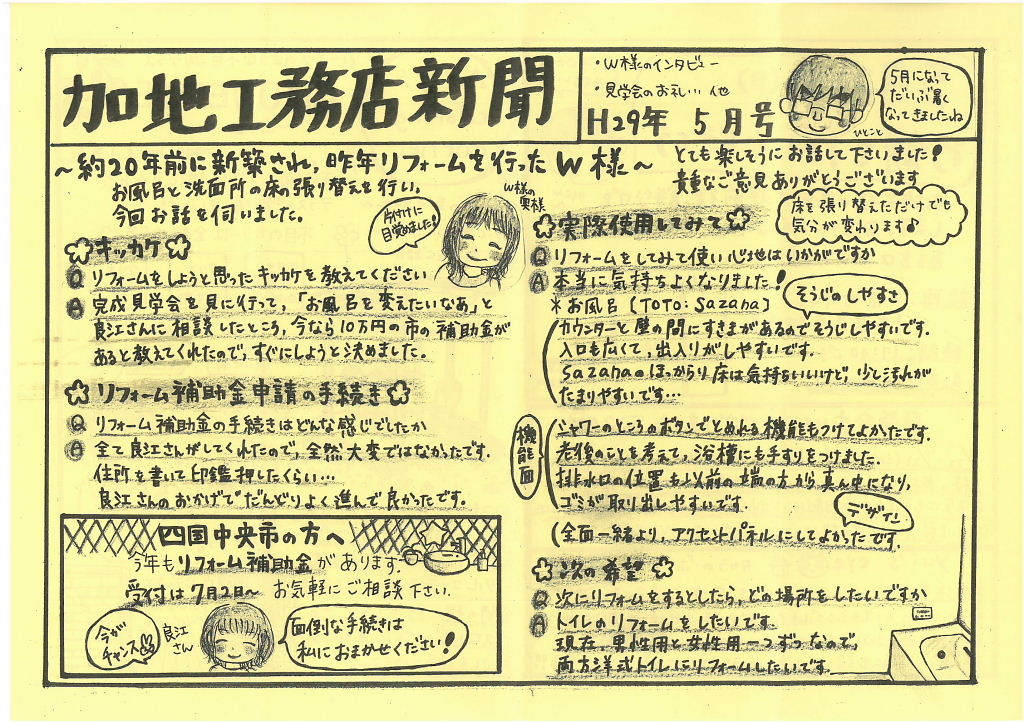 加地工務店新聞
・W様のインタビュー
・見学会のお礼… 他
H29年 5月号
ひとこと
5月になって
だいぶ暑く
なってきましたね
～約20年前に新築され,昨年リフォームを行ったW様～
お風呂と洗面所の床の張り替えを行い,
今回お話を伺いました。
片付けに
目覚めました!
W様の
奥様
とても楽しそうにお話して下さいました!
貴重なご意見ありがとうございます
キッカケ
Q リフォームをしようと思ったキッカケを教えてください
A 完成見学会を見に行って,「お風呂を変えたいなあ」と
良江さんに相談したところ,今なら10万円の市の補助金が
あると教えてくれたので,すぐにしようと決めました。
リフォーム補助金申請の手続き
Q リフォーム補助金の手続きはどんな感じでしたか
A 全て良江さんがしてくれたので,全然大変ではなかったです。
住所を書いて印鑑押したくらい…
良江さんのおかげでだんどりよく進んで良かったです。
四国中央市の方へ
今年もリフォーム補助金があります。
受付は7月2日～ お気軽にご相談下さい。
今が
チャンス
良江
さん
面倒な手続きは
私におまかせください!
実際使用してみて
床を張り替えただけでも
気分が変わります♪
Q リフォームをしてみて使い心地はいかがですか
A 本当に気持ちよくなりました!
そうじのしやすさ
*お風呂 [TOTO:sazana]
カウンターと壁の間にすきまがあるのでそうじしやすいです。
入口も広くて,出入りがしやすいです。
sazanaのほっからり床は気持ちいいけど,少し汚れが
たまりやすいです…
機能面
シャワーのところのボタンでとめれる機能もつけてよかったです。
老後のことを考えて,浴槽にも手すりをつけました。
排水口の位置も以前の端の方から真ん中になり,
ゴミが取り出しやすいです。
デザイン
(全面一緒より,アクセントパネルにしてよかったです。
次の希望
Q 次にリフォームをするとしたら,どの場所をしたいですか
A トイレのリフォームをしたいです。
現在,男性用と女性用一つずつなので,
両方洋式トイレにリフォームしたいです。